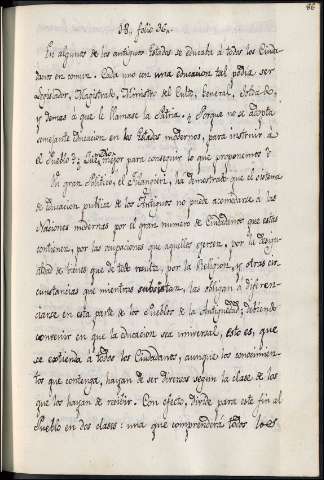 86
18. folio 36.
En algunos de los antiguos Estados se educaba á todos los Ciuda-
danos en comun. Cada uno con una educacion tal podia ser
Legislador, Magistrado, Ministro del Culto, General, Soldado,
y demas á que le llamase la Patria. ¿Porque no se adopta
semejante educacion en los Estados modernos, para instruir á
el Pueblo? ¿Que mejor para conseguir lo que proponemos?
Un gran Politico, el Filangieri, ha demostrado que el sistema
de educacion publica de los Antiguos no puede acomodarse á las
Naciones modernas por el gran numero de Ciudadanos que estas
contienen, por las ocupaciones que aquellos ejercen, por la desigu-
aldad de bienes que de todo resulta, por la Religion, y otras cir-
cunstancias que mientras subsistan, las obligan á diferen-
ciarse en esta parte de los Pueblos de la Antiguedad, debiendo
convenir en que la educacion sea universal, esto es, que
se extienda á todos los Ciudadanos, aunque los conocimien-
tos que contenga, hayan de ser diversos segun la clase de los
que los hayan de recibir. Con efecto, divide para este fin al
Pueblo en dos clases: una que comprenderá todos los